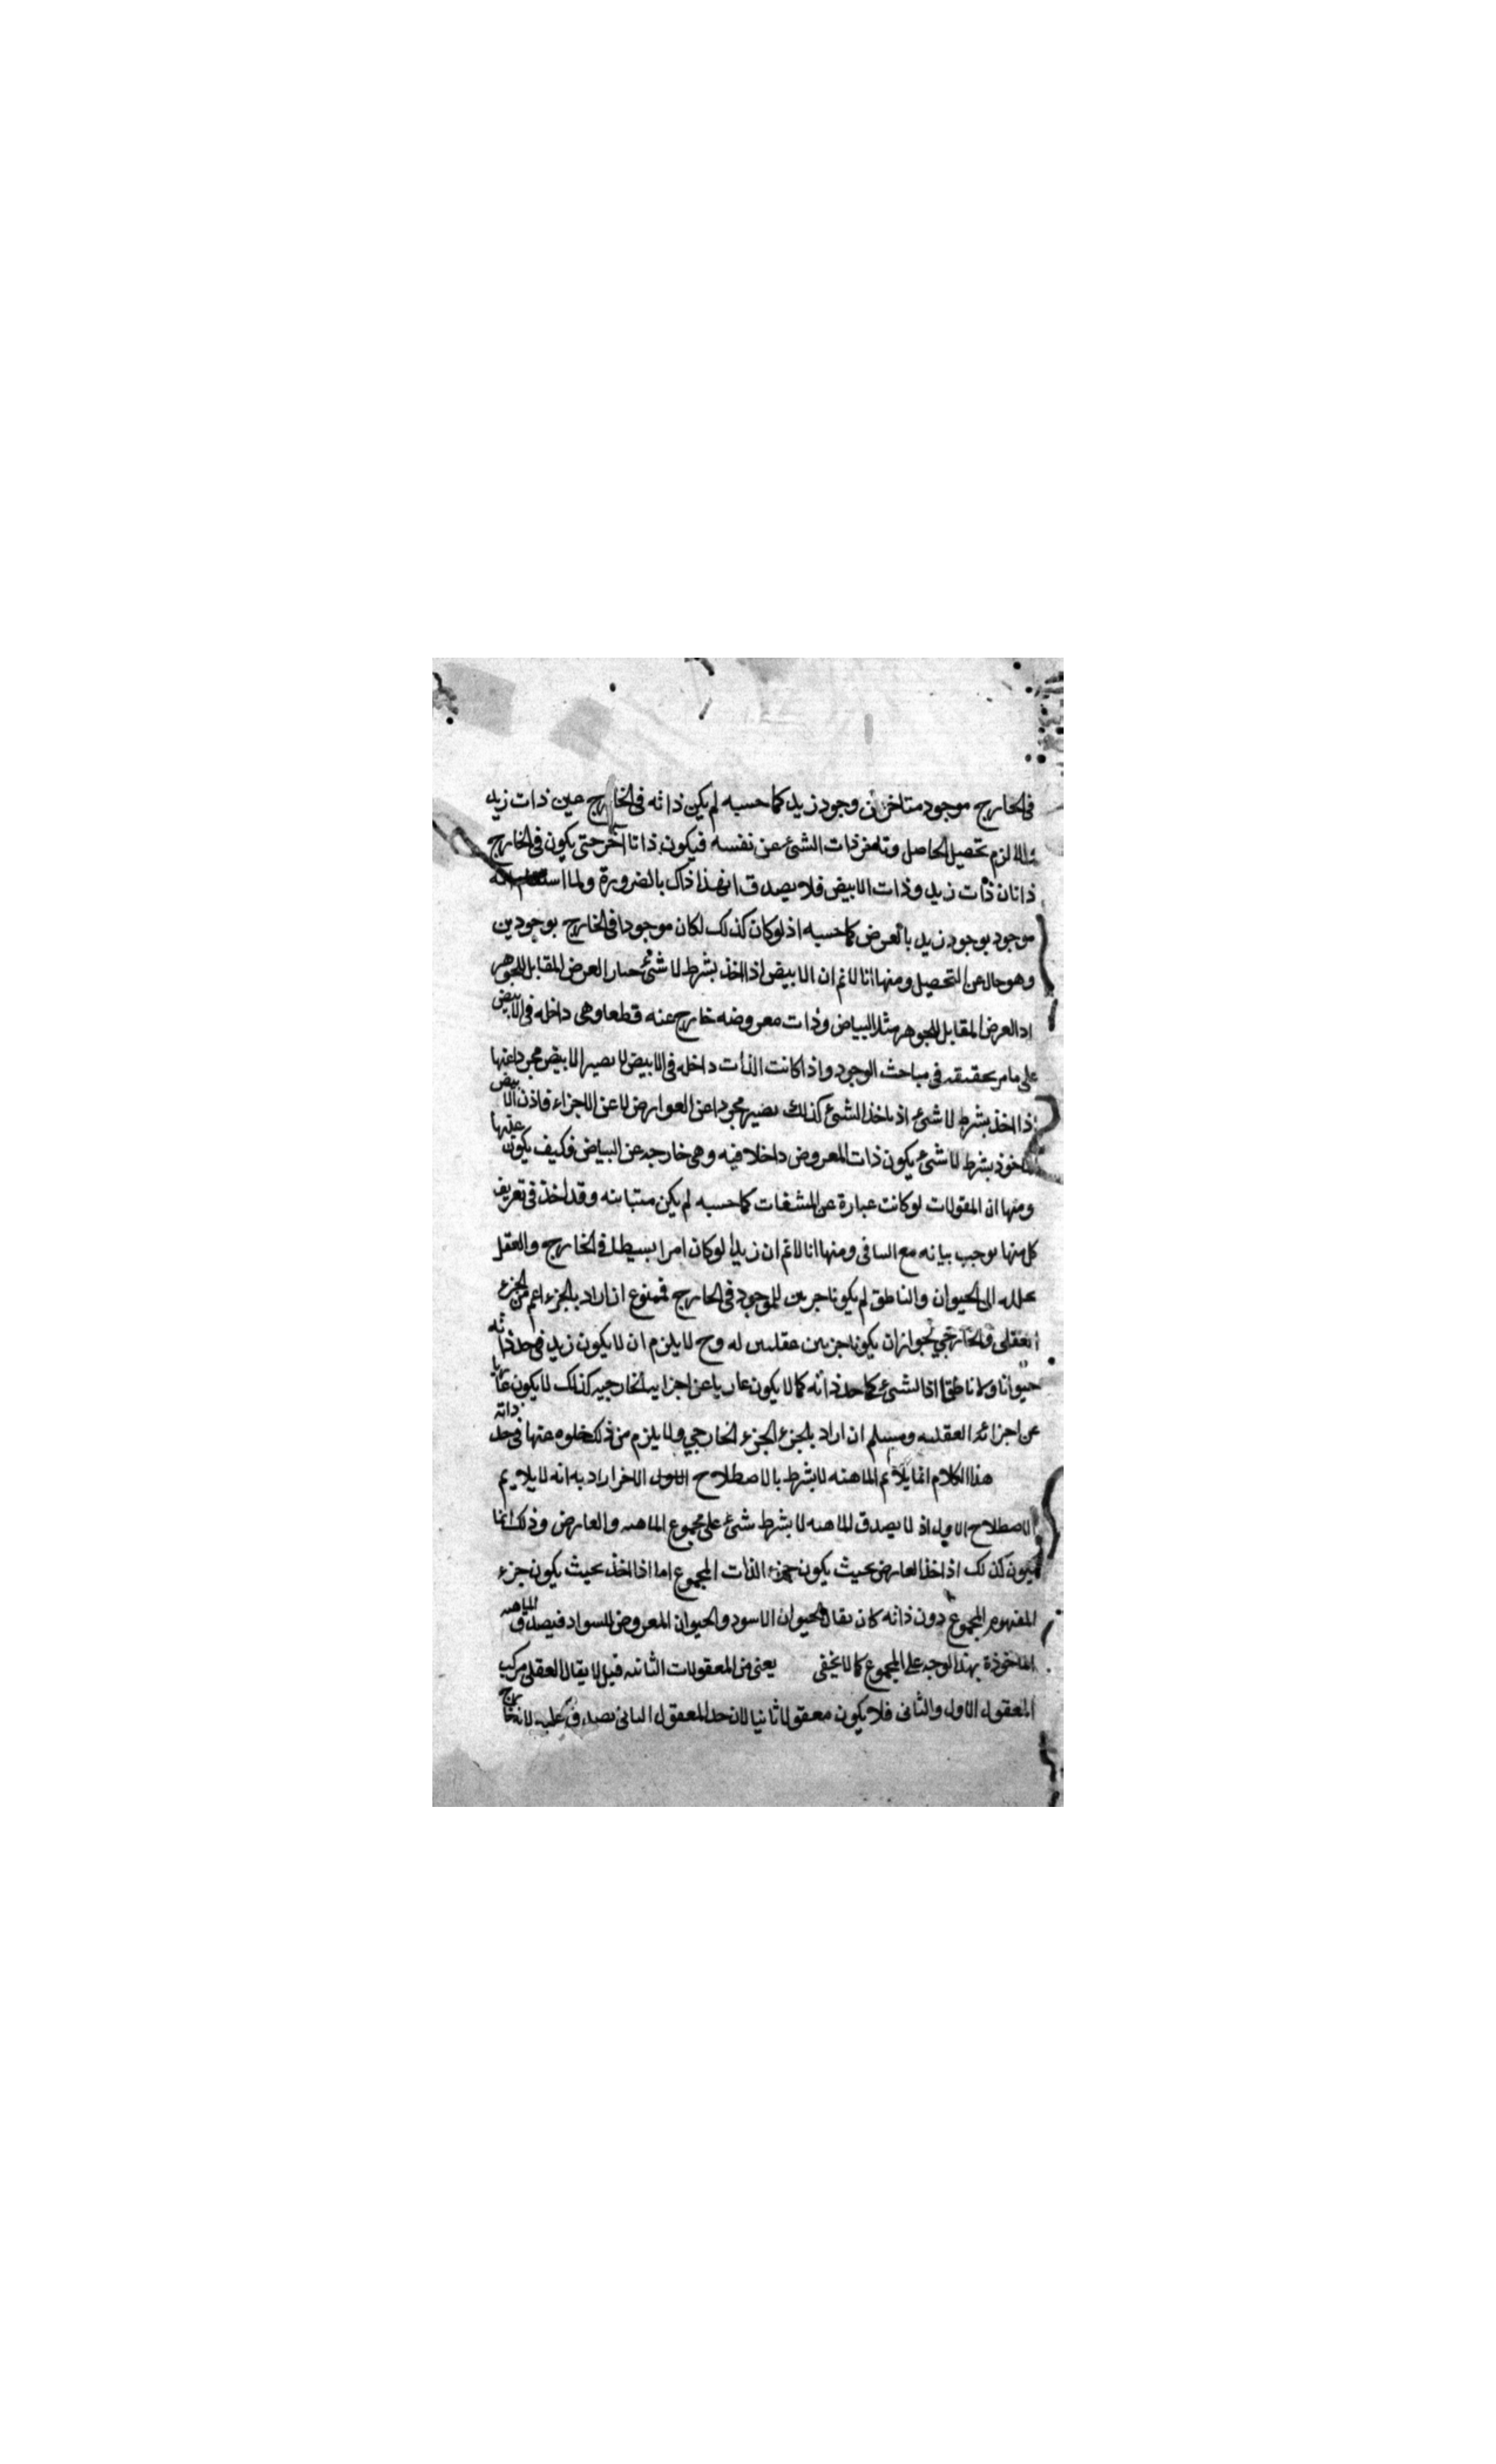 في الخارج موجود متاخر عن وجود زيد كما حسبه لم يكن ذاته في الخارج عين ذات زيد
لزم تحصيل الحاصل وتاخر ذات الشئ عن نفسه فيكون ذاتا آخر حتى يكون في الخارج
ذاتان ذات زيد وذات الابيض فلا يصدق ان هذا ذاك بالضرورة ولما
موجود بوجود زيد بالعرض كما حسبه اذ لو كان كذلك لكان موجودا في الخارج بوجودين
وهو حال عن التحصيل ومنها انا لانم ان الابيض اذا اخذ بشرط لا شئ صار العرض المقابل للجوهر
اذ العرض المقابل للجوهر مثلا البياض وذات معروضه خارج عنه قطعا وهي داخله في الابيض
على ما مر تحقيقه في مباحث الوجود واذا كانت الذات داخله في الابيض لا يصير الابيض مجردا عنها
اذا اخذ بشرط لا شئ اذ باخذ الشئ كذلك يصير مجردا عن العوارض لا عن الاجزاء فاذن الابيض
الماخوذ بشرط لا شئ يكون ذات المعروض داخلا فيه وهي خارجه عن البياض فكيف يكون عينها
ومنها ان المقولات لو كانت عبارة عن المشتقات كما حسبه لم يكن متباينه وقد اخذ في تعريف
كل منها يوجب بيانه مع الباقي ومنها انا لانم ان زيدا لو كان امرا بسيطا في الخارج والعقل
يحلله الى الحيوان والناطق لم يكونا جزءين للموجود في الخارج فممنوع ان اراد بالجزء اعم من الجزء
العقلي والخارجي لجواز ان يكونا جزءين عقليين له وح لا يلزم ان لا يكون زيد في حد ذاته
حيوانا ولا ناطقا اذ الشئ كما حد ذاته كما لا يكون عاريا عن اجزايه الخارجيه كذلك لا يكون عاريا
عن اجزائه العقليه ومسلم ان اراد بالجزء الجزء الخارجي ولا يلزم من ذلك خلوه عنها في حد ذاته
هذا الكلام انما يلائم الماهيه لا بشرط بالاصطلاح الاول الاخر اراد به انه لا يلايم
الاصطلاح الاول اذ لا يصدق الماهيه لا بشرط شئ على مجموع الماهيه والعارض وذلك انما
يكون كذلك اذا اخذ العارض بحيث يكون جزء الذات المجموع اما اذا اخذ بحيث يكون جزء
المفهوم المجموع دون ذاته كان يقال الحيوان الاسود والحيوان المعروض للسواد فيصدق الماهيه
الماخوذة بهذا الوجه على المجموع كما لا يخفى يعني من المعقولات الثانيه قيل لا يقال العقلي مركب
المعقول الاول والثاني فلا يكون معقولا ثانيا لان حد المعقول الثاني يصدق عليه لانه خارج